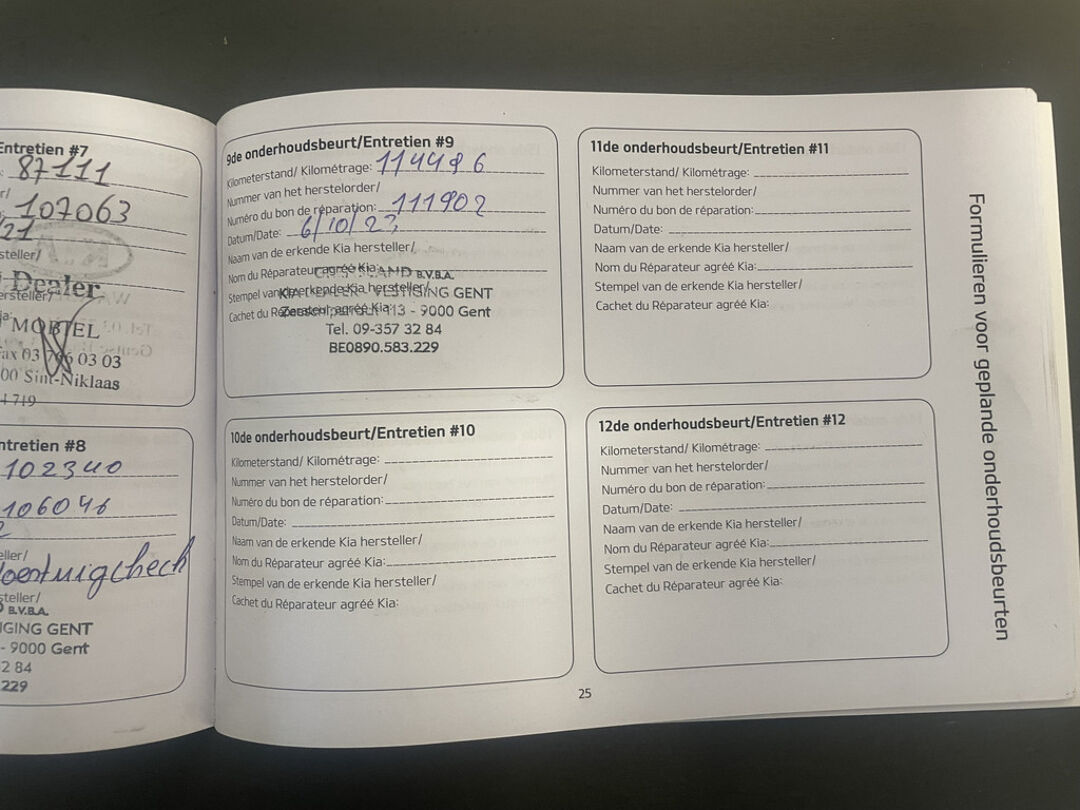 Entretien #7
87111
107063
21
steller/
Dealer
ersteller/
MOBIEL
ax 03 03 03
00 Sint-Niklaas
4 719
ntretien #8
102340
106046
eller/
steller/
B.V.B.A.
IGING GENT
- 9000 Gent
2 84
229
9de onderhoudsbeurt/Entretien #9
Kilometerstand/ Kilométrage: 114486
Nummer van het herstelorder/
Numéro du bon de réparation: 111902
Datum/Date: 6/10/23
Naam van de erkende Kia hersteller/
Nom du Réparateur agréé Kia:
B.V.B.A.
Stempel van de erkende Kia hersteller/
KIA DEALER - VESTIGING GENT
Cachet du Réparateur agréé Kia:
113 - 9000 Gent
Tel. 09-357 32 84
BE0890.583.229
10de onderhoudsbeurt/Entretien #10
Kilometerstand/ Kilométrage:
Nummer van het herstelorder/
Numéro du bon de réparation:
Datum/Date:
Naam van de erkende Kia hersteller/
Nom du Réparateur agréé Kia:
Stempel van de erkende Kia hersteller/
Cachet du Réparateur agréé Kia:
11de onderhoudsbeurt/Entretien #11
Kilometerstand/ Kilométrage:
Nummer van het herstelorder/
Numéro du bon de réparation:
Datum/Date:
Naam van de erkende Kia hersteller/
Nom du Réparateur agréé Kia:
Stempel van de erkende Kia hersteller/
Cachet du Réparateur agréé Kia:
12de onderhoudsbeurt/Entretien #12
Kilometerstand/ Kilométrage:
Nummer van het herstelorder/
Numéro du bon de réparation:
Datum/Date:
Naam van de erkende Kia hersteller/
Nom du Réparateur agréé Kia:
Stempel van de erkende Kia hersteller/
Cachet du Réparateur agréé Kia:
Formulieren voor geplande onderhoudsbeurten
25